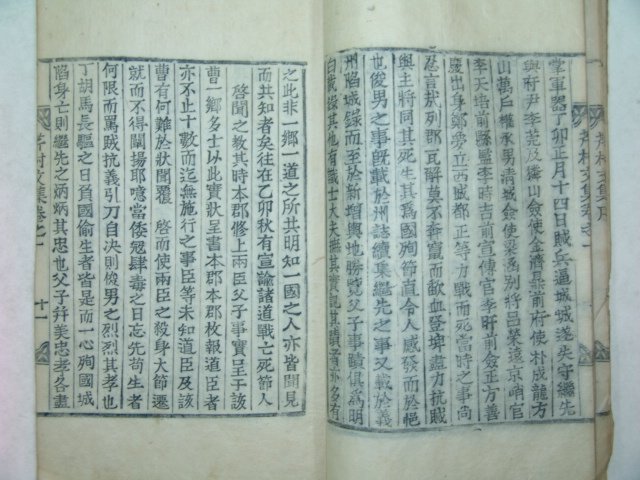 掌軍器丁卯正月十四日賊兵逼城城遂失守繼先
與府尹李莞及山僉使金濟前府使朴成龍方
山萬戶權承男清城僉使涵別將呂榮遠京哨官
李天培前縣監李時吉前宣傳官李旰前僉正方義
慶出身鄭夢立西城都正等力戰而死當時之事尚
忍言哉列郡瓦解莫不奔竄而飲血登埤盡力抗賊
與主將同其死生其直令人感發而於
也俊男之事旣載於州誌續集繼先之事又載於義
州陷城錄而至於新增輿地勝覽父子事蹟俱爲明
白載錄其他有戰士大夫其實觀其蹟亦多有
之此非一鄉一道之所共明知一國之人亦皆聞見
而共知者矣往在乙卯秋有宣諭諸道戰亡死節人
啓聞之敎其時本郡修上兩臣父子事實呈于該
曹一鄉多士以此實狀呈書本郡本郡枚報道臣者
亦不止十數而迄無施行之事臣等未知道臣及該
曹有何難於狀聞覆 啓而使兩臣之殺身大節遷
就而不得闡揚耶噫當倭冦肆毒之日忘先苟生者
何限而罵賊抗義引刀自决則俊男之烈烈其孝也
丁胡馬長驅之日負國偷生者皆是而一心殉國城
陷身亡則繼先之炳炳其忠也父子幷美忠孝各盡
村文集卷之一
十一